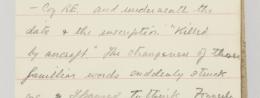 – Coy R.E. and underneath the
date & the inscription "Killed
by aircraft." The strangeness of these
familiar words suddenly struck
me & I paused to think. Formerly